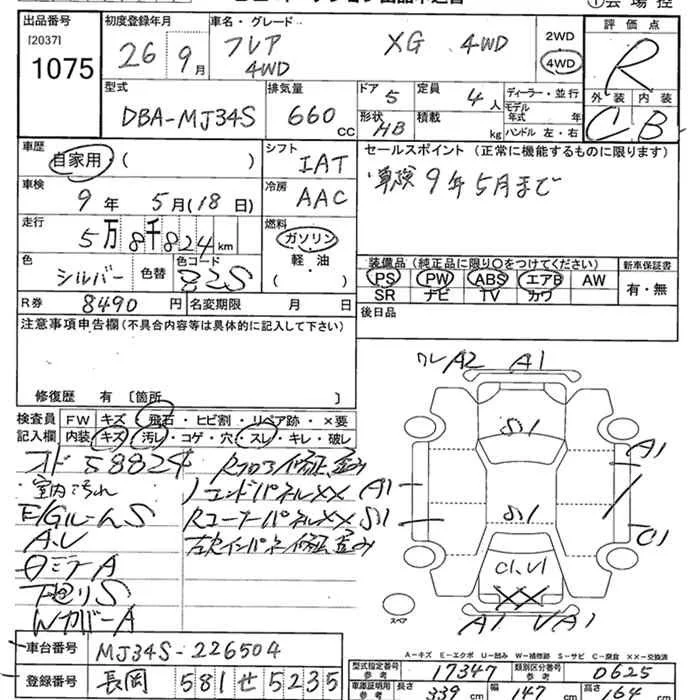 ①会場控
出品番号 初度登録年月 車名・グレード 評価点
[2037]
1075
26 9月 フレア XG 4WD 2WD R
4WD 4WD
型式 排気量 ドア 5 定員 4人 ディーラー・並行 外装 内装
DBA-MJ34S 660cc 形状 HB 積載 kg モデル年式 年 C B
ハンドル 左・右
車歴 シフト セールスポイント (正常に機能するものに限ります)
自家用・( ) IAT 車険9年5月まで
車検 冷房
9年 5月(18日) AAC
走行 燃料
5万8千824km ガソリン
軽・油
( ・ )
色 シルバー 色替 色コード Z2S
装備品 (純正品に限り○をつけてください) 新車保証書
PS PW ABS エアB AW 有・無
SR ナビ TV カワ
R券 8490円 名変期限 月 日
後日品
注意事項申告欄(不具合内容等は具体的に記入して下さい)
修復歴 有 〔箇所 〕
検査員 FW キズ・飛石・ヒビ割・リペア跡・×要
記入欄 内装 キズ・汚レ・コゲ・穴・スレ・キレ・破レ
オド58824
室内汚れ
E/GルームS
下廻りS
WカバーA
エンドパネルXX
RコーナーパネルXX
A2 A1
S1
A1 A1
S1 S1
C1
C1,V1
XX
A1 VA1
スペア
A-キズ E-エクボ U-凹み W-補修跡 S-サビ C-腐食 ××-交換済
車台番号 MJ34S-226504
登録番号 長岡 581 せ 5235
型式指定番号 参考 17347 類別区分番号 参考 0625
車庫証明用 参考 長さ 339cm 幅 147cm 高さ 164cm